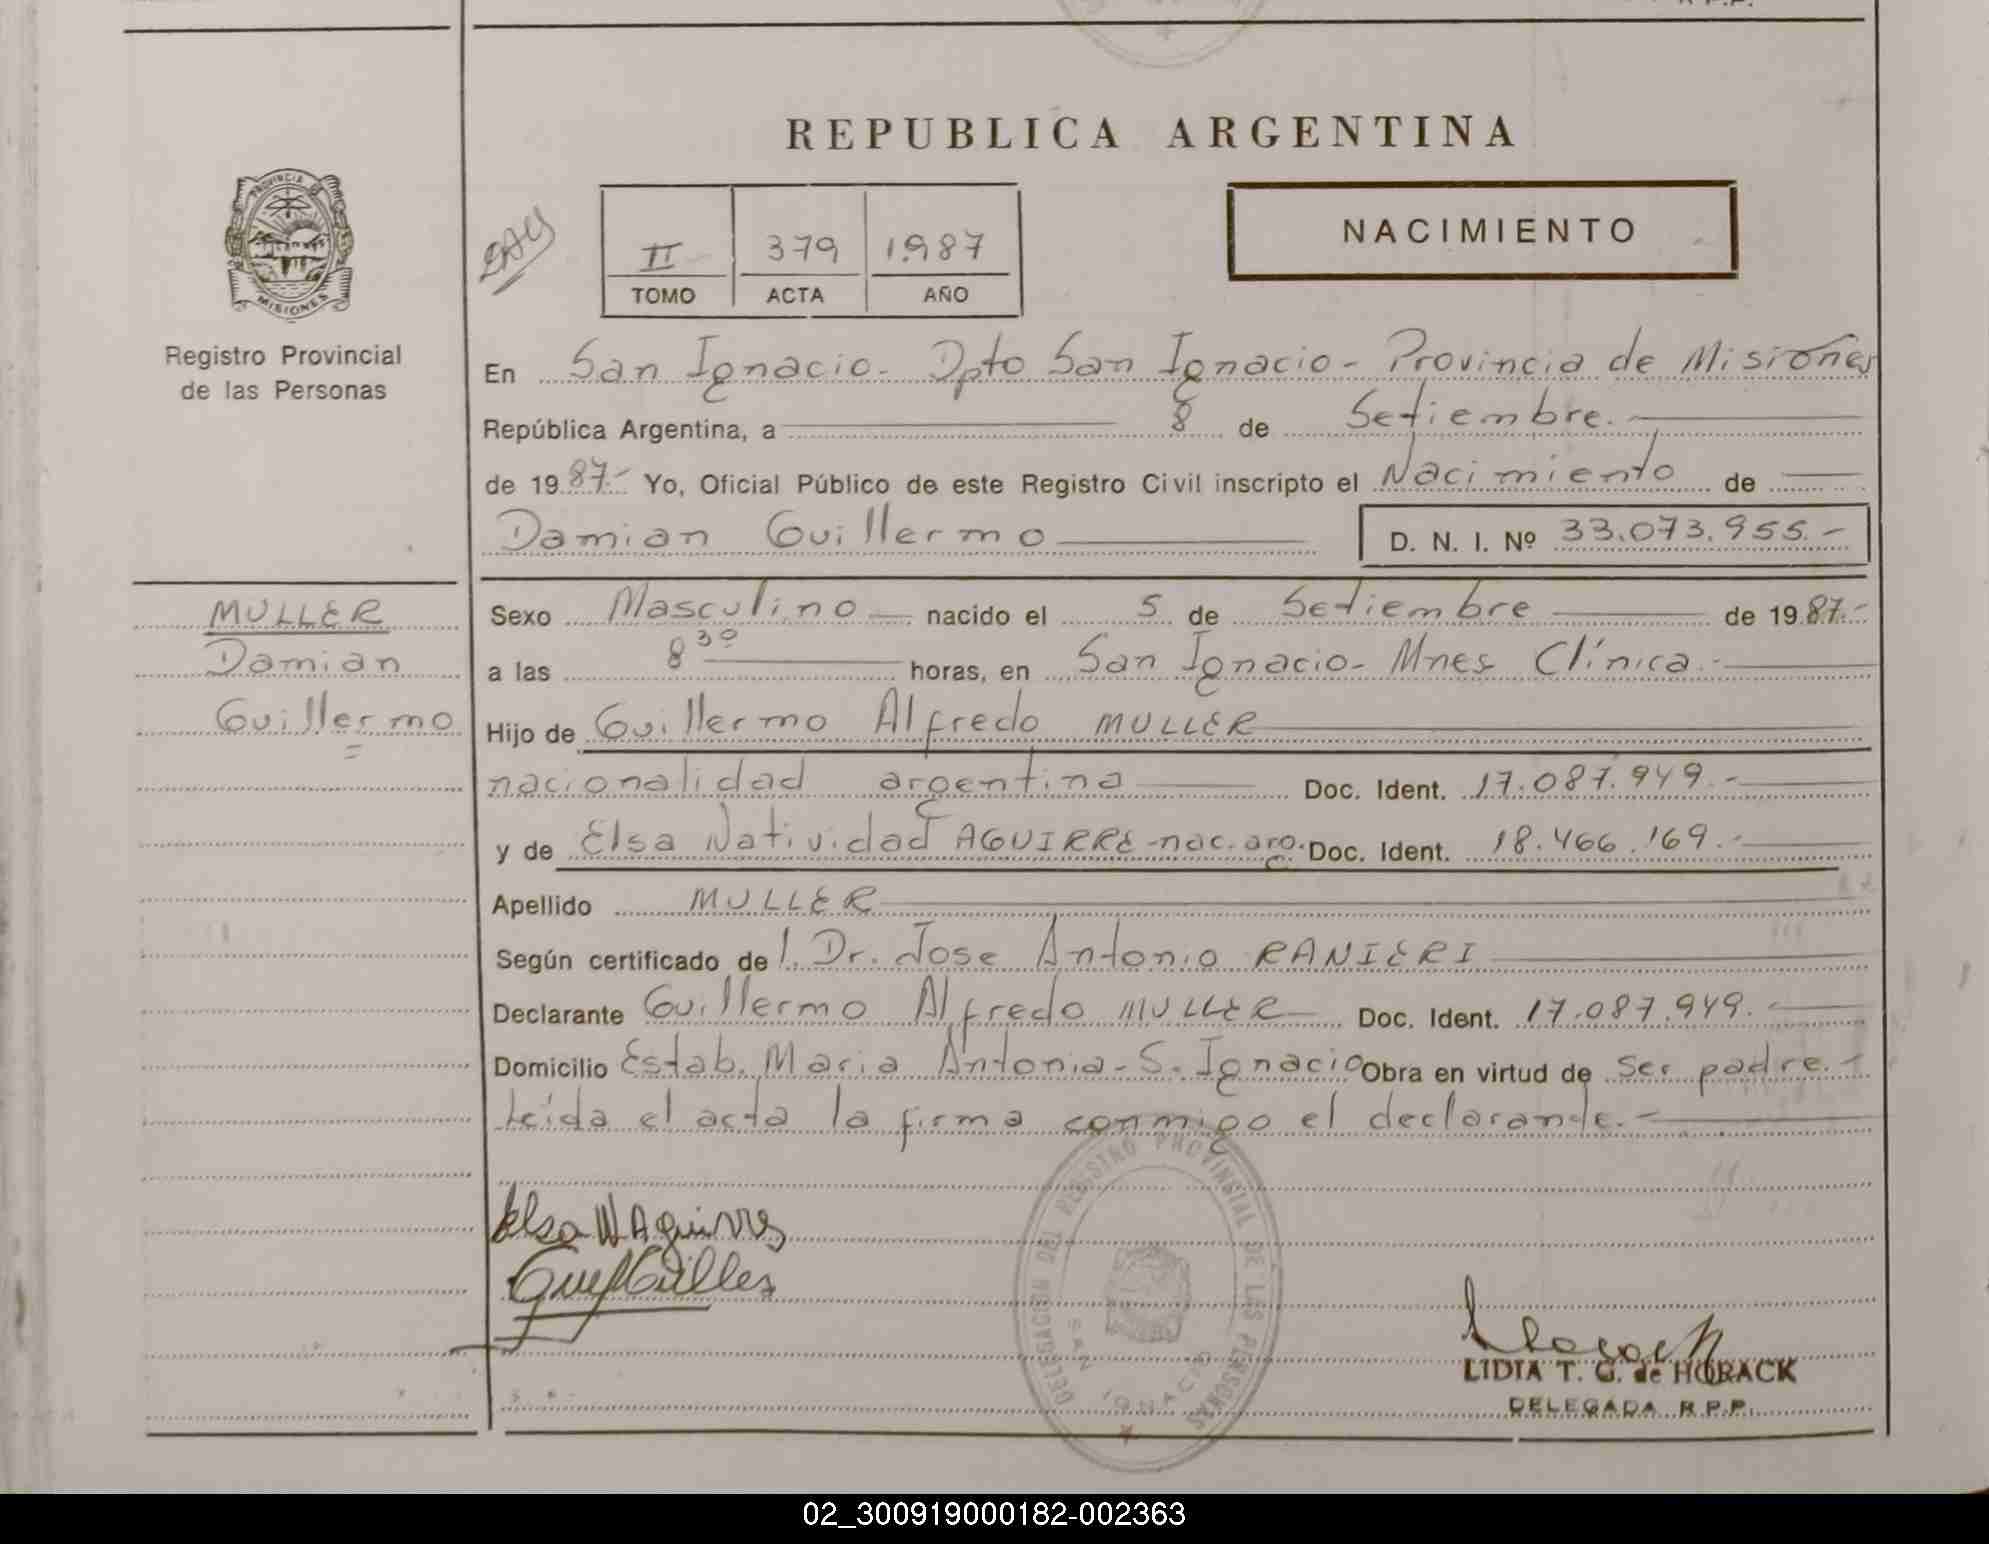 R.P.P.
REPUBLICA ARGENTINA
PROVINCIA
MISIONES
Registro Provincial
de las Personas
II 379 1.987
TOMO ACTA AÑO
NACIMIENTO
En San Ignacio- Dpto San Ignacio- Provincia de Misiones
República Argentina, a 8 de Setiembre.
de 1987.- Yo, Oficial Público de este Registro Civil inscripto el Nacimiento de
Damian Guillermo D. N. I. Nº 33.073.955.-
MULLER
Damian
Guillermo
Sexo Masculino nacido el 5 de Setiembre de 1987.-
a las 8 30 horas, en San Ignacio- Mnes Clínica.-
Hijo de Guillermo Alfredo MULLER
nacionalidad argentina Doc. Ident. 17.087.949.-
y de Elsa Natividad AGUIRRE-nac. arg. Doc. Ident. 18.466.169.-
Apellido MULLER
Según certificado de l. Dr. Jose Antonio RANIERI
Declarante Guillermo Alfredo MULLER Doc. Ident. 17.087.949.-
Domicilio Estab. Maria Antonia- S. Ignacio Obra en virtud de ser padre.-
Leída el acta la firma conmigo el declarante.-
DELEGACION DEL REGISTRO PROVINCIAL DE LAS PERSONAS
SAN IGNACIO
Elsa N Aguirre
LIDIA T. G. de HORACK
DELEGADA R.P.P.
02_300919000182-002363